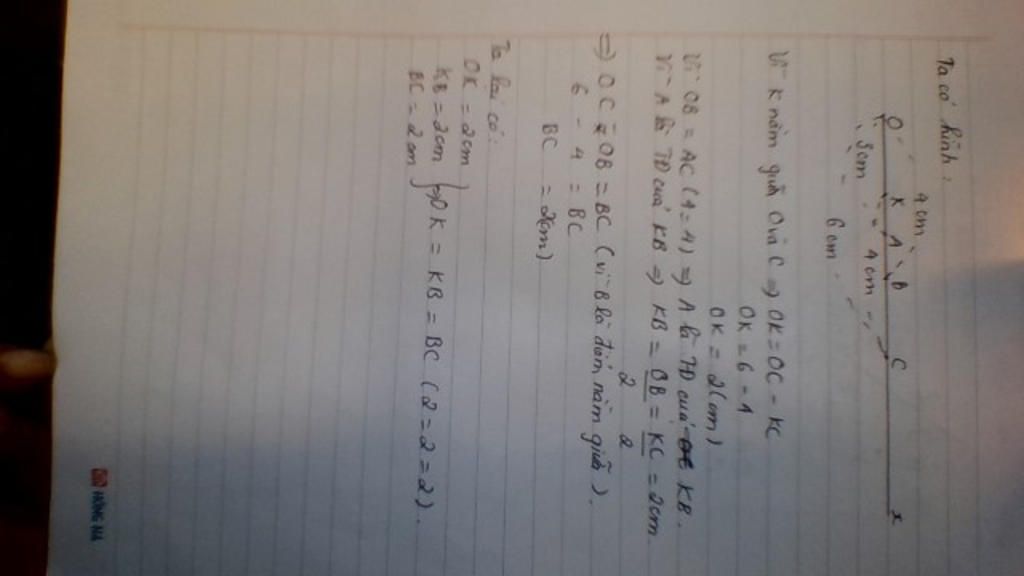 Ta có hình:
4cm
O K A B C x
3cm 4cm
6cm
Vì K nằm giữa O và C => OK = OC - KC
OK = 6 - 4
OK = 2(cm)
Vì OB = AC (4 = 4) => A là TĐ của KB.
Vì A là TĐ của KB => KB = OB/2 = KC/2 = 2cm
=> OC - OB = BC (vì B là điểm nằm giữa).
6 - 4 = BC
BC = 2(cm)
Ta lại có:
OK = 2cm
KB = 2cm } => OK = KB = BC (2 = 2 = 2).
BC = 2cm
HỒNG HÀ